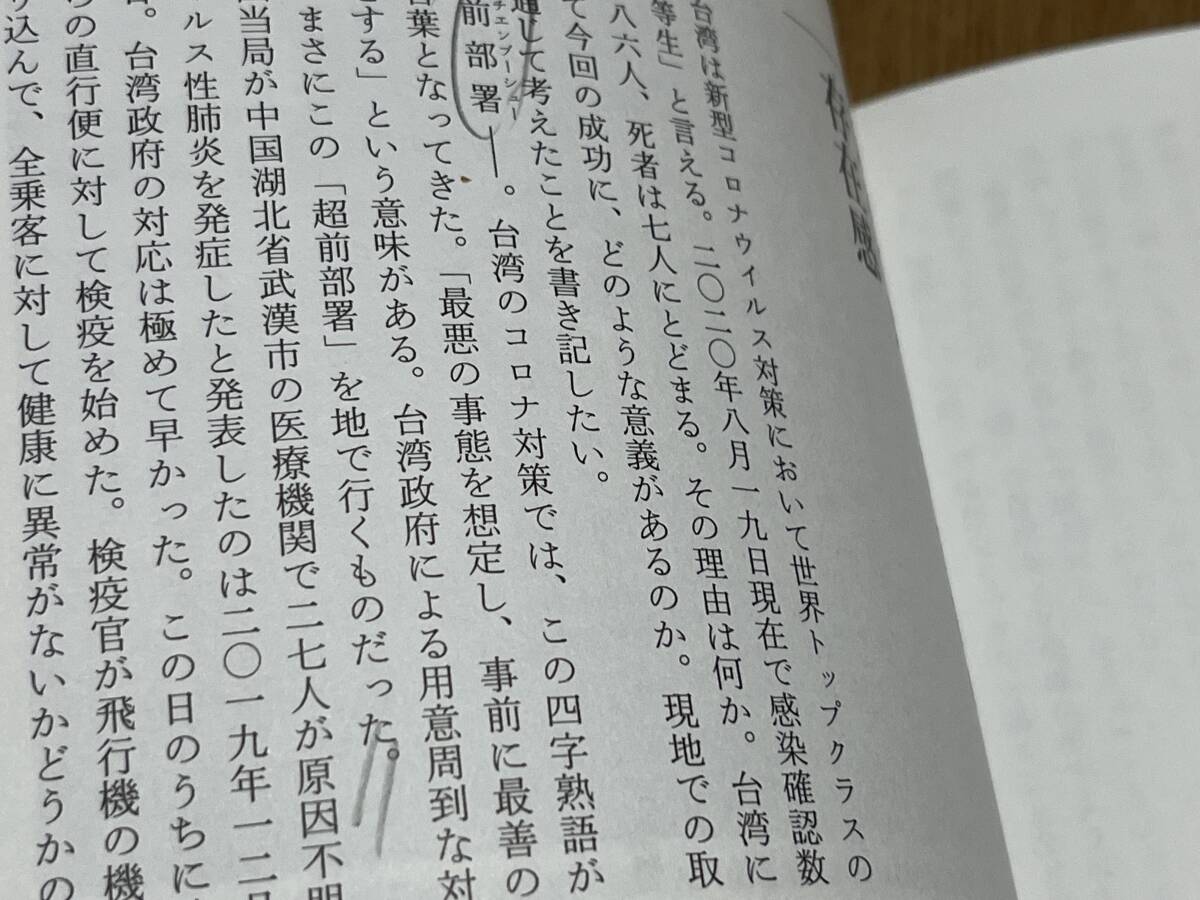 存在感
台湾は新型コロナウイルス対策において世界トップクラスの
等生」と言える。二〇二〇年八月一九日現在で感染確認数
八六人、死者は七人にとどまる。その理由は何か。台湾に
て今回の成功に、どのような意義があるのか。現地での取
通して考えたことを書き記したい。
前部署チエンブーシュー――。台湾のコロナ対策では、この四字熟語が
言葉となってきた。「最悪の事態を想定し、事前に最善の
する」という意味がある。台湾政府による用意周到な対
まさにこの「超前部署」を地で行くものだった。
当局が中国湖北省武漢市の医療機関で二七人が原因不明
ルス性肺炎を発症したと発表したのは二〇一九年一二月
台湾政府の対応は極めて早かった。この日のうちに
の直行便に対して検疫を始めた。検疫官が飛行機の機
り込んで、全乗客に対して健康に異常がないかどうかの